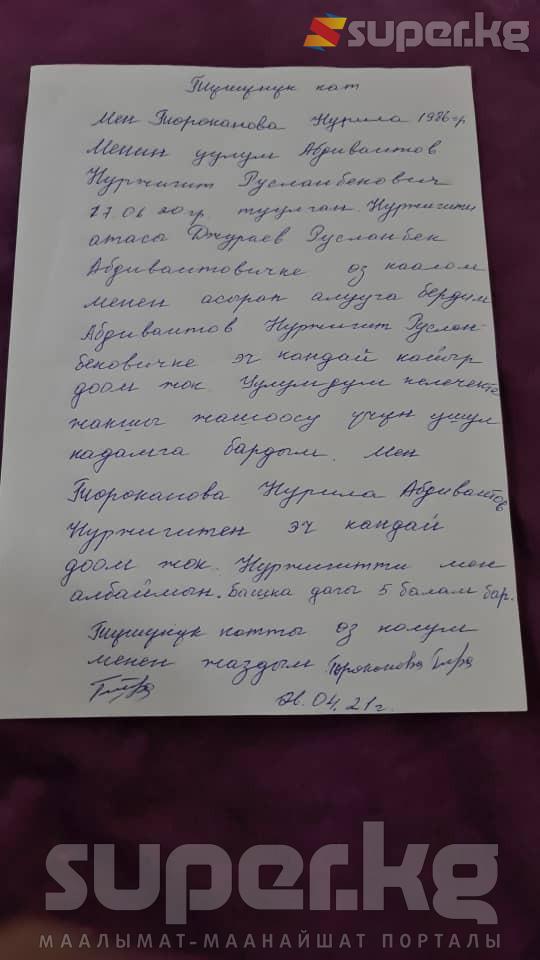 super.kg
Түшүнүк кат
Мен Тороканова Нурила 1986 гр
Менин уулум Абдиваитов
Нуржигит Русланбекович
17.06 20 гр. туулган. Нуржигитти
атасы Джураев Русланбек
Абдиваитовичке оз каалом
менен асырап алууга бердим
Абдиваитов Нуржигит Руслан-
бековичке эч кандай кайыр
доом жок. Уулумдум келечекте
жакшы жашоосу учун ушул
кадамга бардым. Мен
Тороканова Нурила Абдиваитов
Нуржигитен эч кандай
доом жок. Нуржигитти мен
албаймын. Башка дагы 5 балам бар.
Түшүнүк катты оз колум
менен жаздым. Тороконова
04.21 г.
super.kg
МААЛЫМАТ-МААНАЙШАТ ПОРТАЛЫ